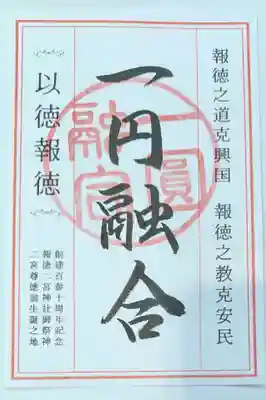 報徳之道克興国 報徳之教克安民
一円融合
一圓融合
以徳報徳
創建百参十周年記念
報徳二宮神社御祭神
二宮尊徳翁生誕之地